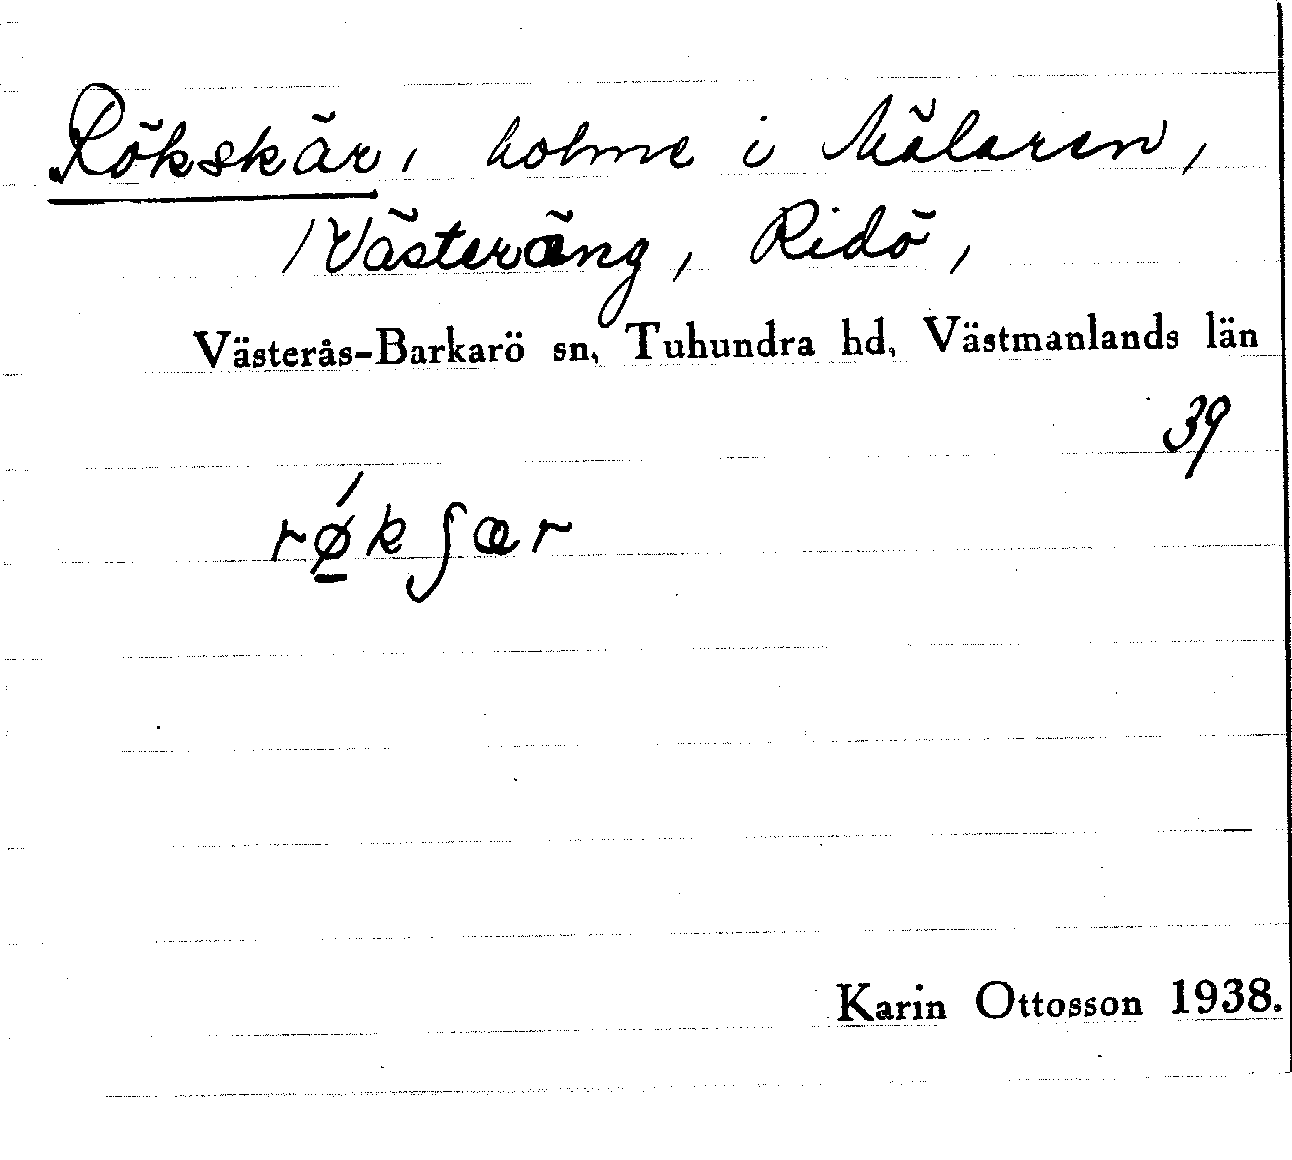 Rökskär, holme i Mälaren,
Västeräng, Ridö,
Västerås-Barkarö sn, Tuhundra hd, Västmanlands län
39
rǿ̲kʃær
Karin Ottosson 1938.